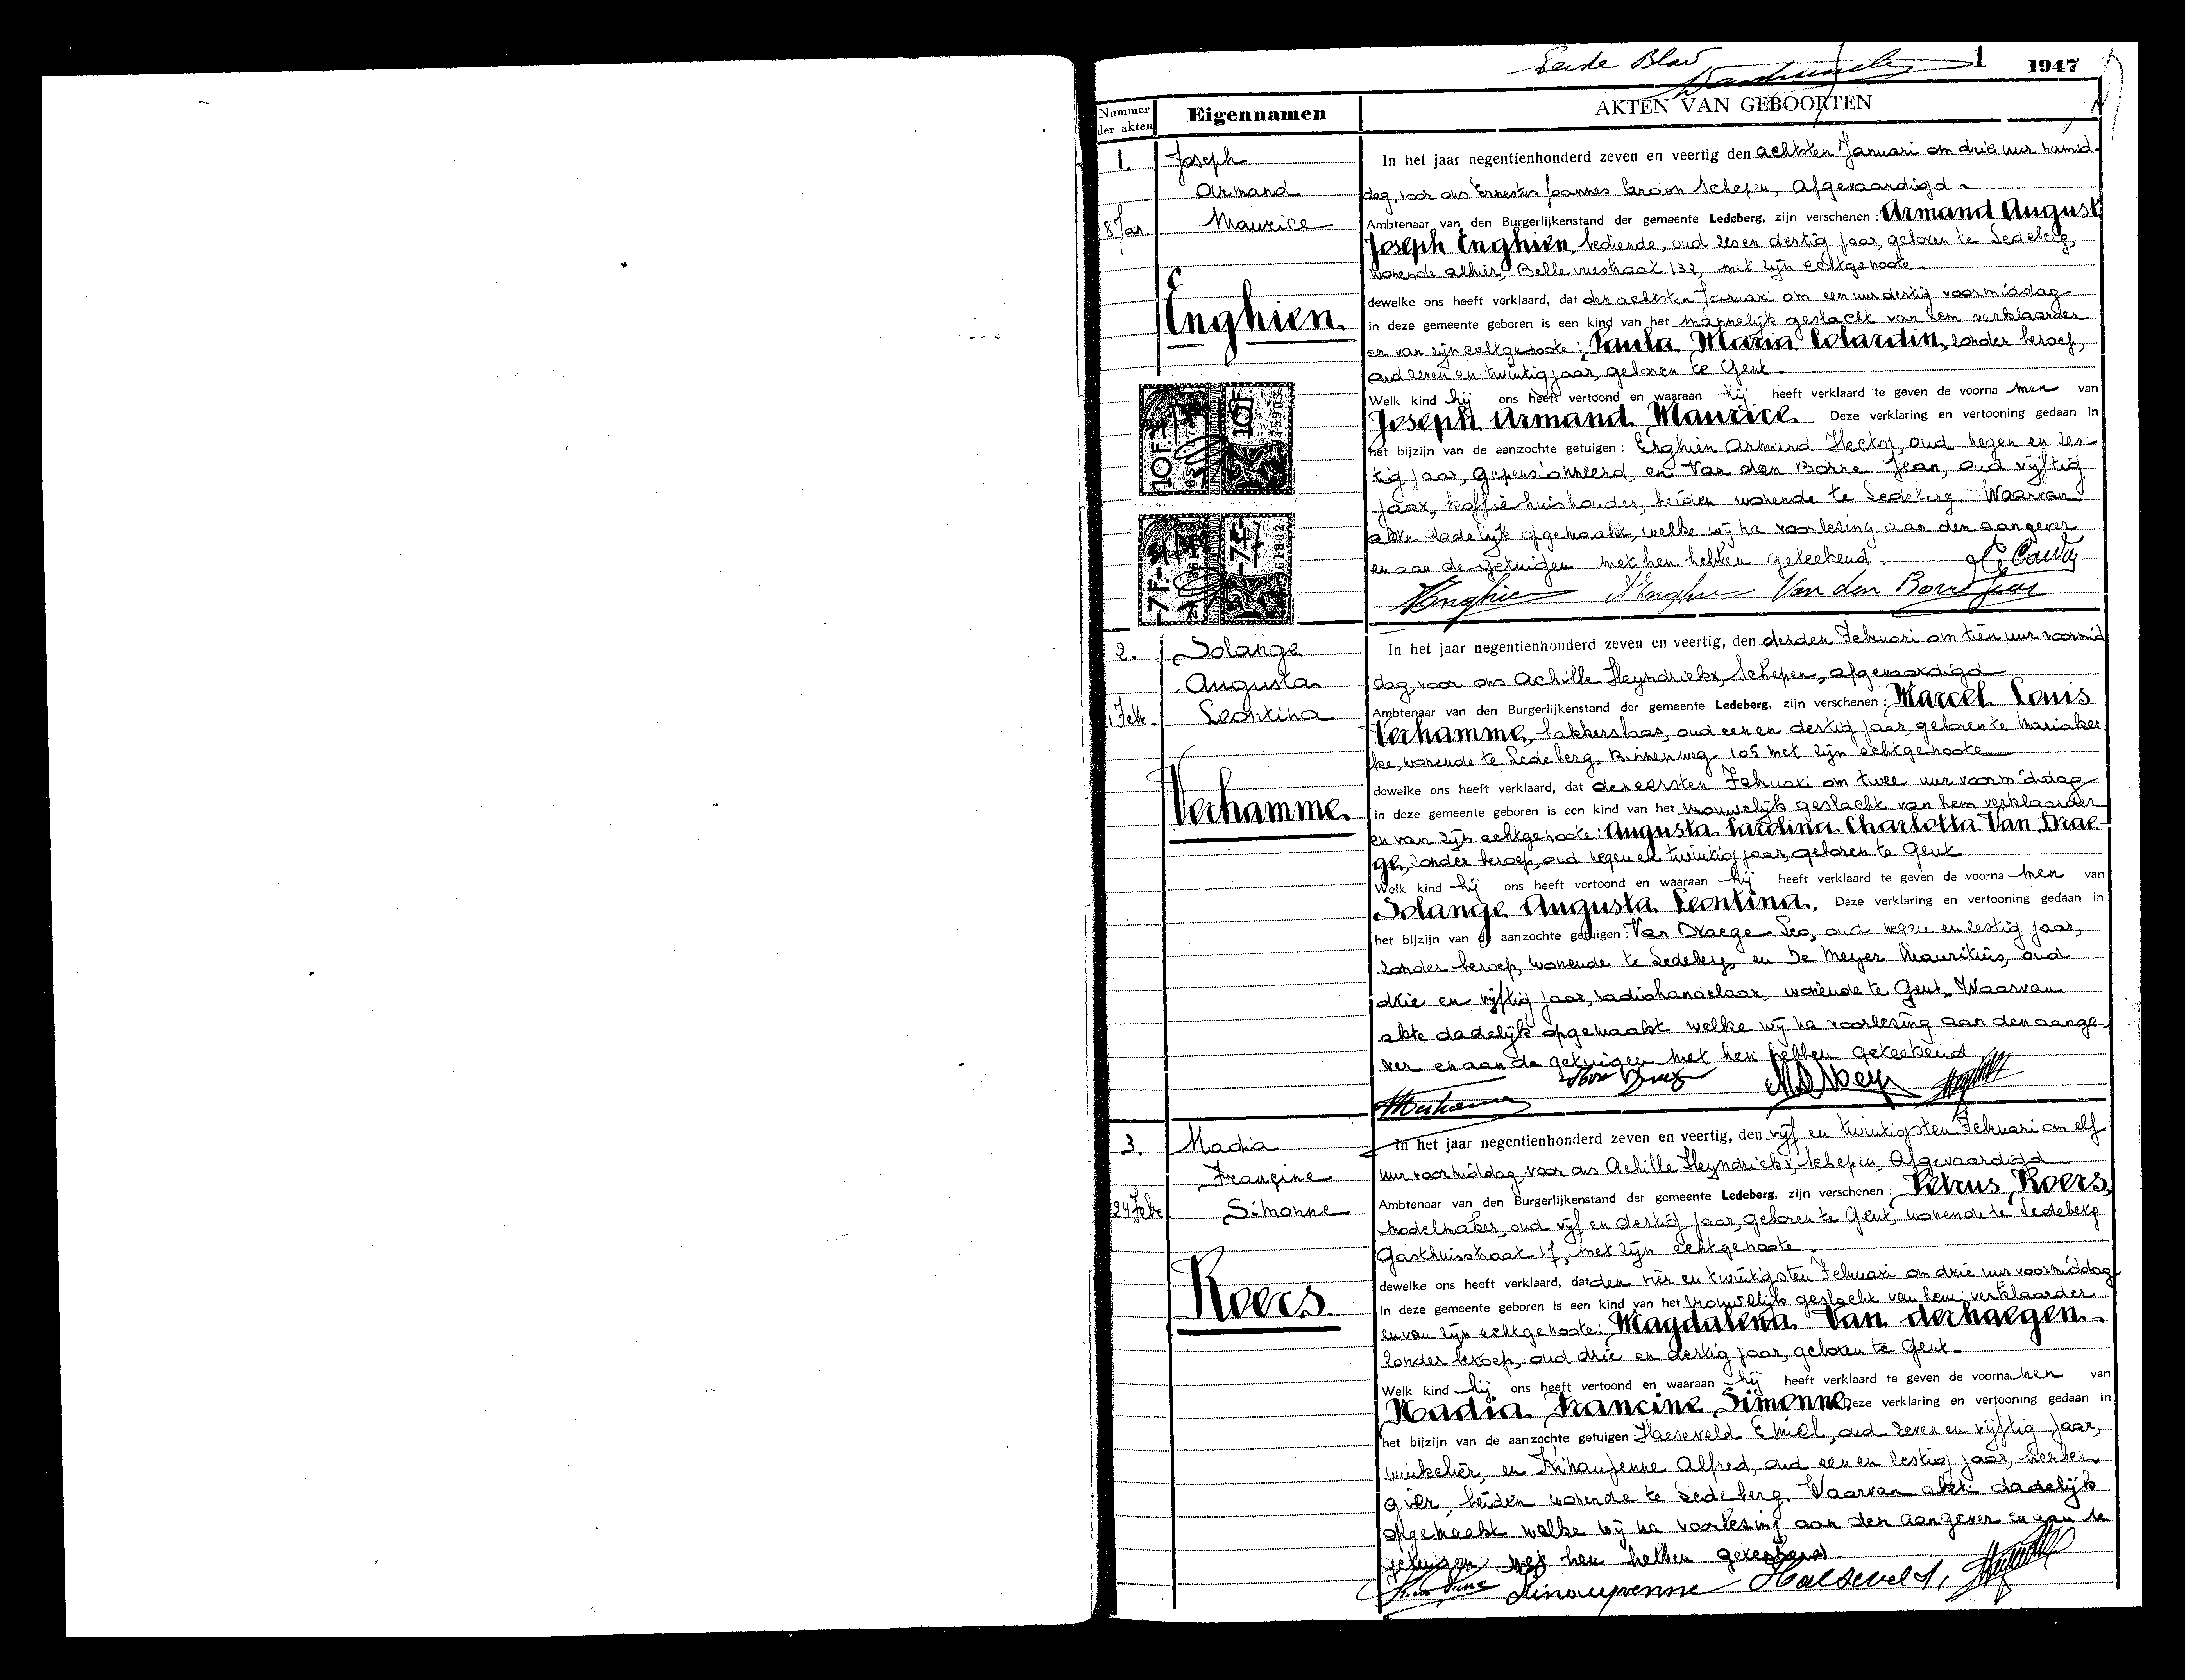 Eerste Blad
1 1947
Nummer der akten
Eigennamen
AKTEN VAN GEBOORTEN
1.
8 Jan.
Joseph
Armand
Maurice
Enghien.
10 F.
10 F.
-7 F.-
-7 F.-
In het jaar negentienhonderd zeven en veertig den achtsten Januari om drie uur namid-
dag, voor ons Ernestus Joannes Schepen, Afgevaardigd
Ambtenaar van den Burgerlijkenstand der gemeente Ledeberg, zijn verschenen: Armand August
Joseph Enghien, bediende, oud zes en dertig jaar, geboren te Ledeberg,
wonende alhier, Bellevuestraat 132, met zijn echtgenoote.
dewelke ons heeft verklaard, dat den achtsten Januari om een uur dertig voormiddag
in deze gemeente geboren is een kind van het mannelijk geslacht van hem verklaarder
en van zijn echtgenoote: Paula Maria Colardin, zonder beroep,
oud zeven en twintig jaar, geboren te Gent.
Welk kind hij ons heeft vertoond en waaraan hij heeft verklaard te geven de voorna men van
Joseph Armand Maurice. Deze verklaring en vertooning gedaan in
het bijzijn van de aanzochte getuigen: Enghien Armand Hector, oud negen en zes-
tig jaar, gepensionneerd, en Van den Borre Jean, oud vijftig
jaar, koffiehuishouder, beiden wonende te Ledeberg. Waarvan
akte dadelijk opgemaakt, welke wij na voorlezing aan den aangever
en aan de getuigen met hen hebben geteekend.
Enghien Van den Borre Jean
2.
1 Feb.
Solange
Augusta
Leontina
Verhamme.
In het jaar negentienhonderd zeven en veertig, den derden Februari om tien uur voormid
dag, voor ons Achille Heyndrickx, Schepen, afgevaardigd
Ambtenaar van den Burgerlijkenstand der gemeente Ledeberg, zijn verschenen: Marcel Louis
Verhamme, bakkersbaas, oud een en dertig jaar, geboren te Mariaker-
ke, wonende te Ledeberg, Binnenweg 105 met zijn echtgenoote
dewelke ons heeft verklaard, dat den eersten Februari om twee uur voormiddag
in deze gemeente geboren is een kind van het vrouwelijk geslacht van hem verklaarder
en van zijn echtgenoote: Augusta Carolina Charlotta Van Drae-
ge, zonder beroep, oud negen en twintig jaar, geboren te Gent
Welk kind hij ons heeft vertoond en waaraan hij heeft verklaard te geven de voorna men van
Solange Augusta Leontina. Deze verklaring en vertooning gedaan in
het bijzijn van de aanzochte getuigen: Van Draege Leo, oud negen en zestig jaar,
zonder beroep, wonende te Ledeberg, en De Meyer Mauritius, oud
drie en vijftig jaar, radiohandelaar, wonende te Gent. Waarvan
akte dadelijk opgemaakt welke wij na voorlezing aan den aange-
ver en aan de getuigen met hen hebben geteekend
3.
24 Feb.
Nadia
Francine
Simonne
Roers.
In het jaar negentienhonderd zeven en veertig, den vijf en twintigsten Februari om elf
uur voormiddag, voor ons Achille Heyndrickx, Schepen, Afgevaardigd
Ambtenaar van den Burgerlijkenstand der gemeente Ledeberg, zijn verschenen: Petrus Roers,
modelmaker, oud vijf en dertig jaar, geboren te Gent, wonende te Ledeberg
Gasthuisstraat 17, met zijn echtgenoote.
dewelke ons heeft verklaard, dat den vier en twintigsten Februari om drie uur voormiddag
in deze gemeente geboren is een kind van het vrouwelijk geslacht van hem verklaarder
en van zijn echtgenoote: Magdalena Van derhaegen.
zonder beroep, oud drie en dertig jaar, geboren te Gent.
Welk kind hij ons heeft vertoond en waaraan hij heeft verklaard te geven de voorna men van
Nadia Francine Simonne Deze verklaring en vertooning gedaan in
het bijzijn van de aanzochte getuigen Haeseveld Emiel, oud zeven en vijftig jaar,
winkelier, en Alfred, oud een en zestig jaar, herber-
gier, beiden wonende te Ledeberg. Waarvan akte dadelijk
opgemaakt welke wij na voorlezing aan den aangever en aan de
getuigen met hen hebben geteekend.
Haeseveld